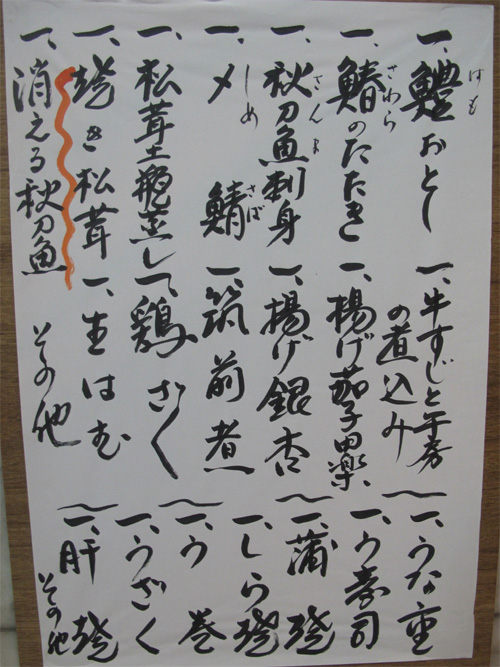 一、鱧おとし
はも
一、鰆のたたき
さわら
一、秋刀魚刺身
さんま
一、〆鯖
しめ さば
一、松茸土瓶蒸し
一、焼き松茸
一、消える秋刀魚
一、牛すじと牛蒡
の煮込み
一、揚げ茄子田楽
一、揚げ銀杏
一、筑前煮
一、鶏ざく
一、生はむ
その他
一、うな重
一、う寿司
一、蒲焼
一、しら焼
一、う巻
一、うざく
一、肝焼
その他